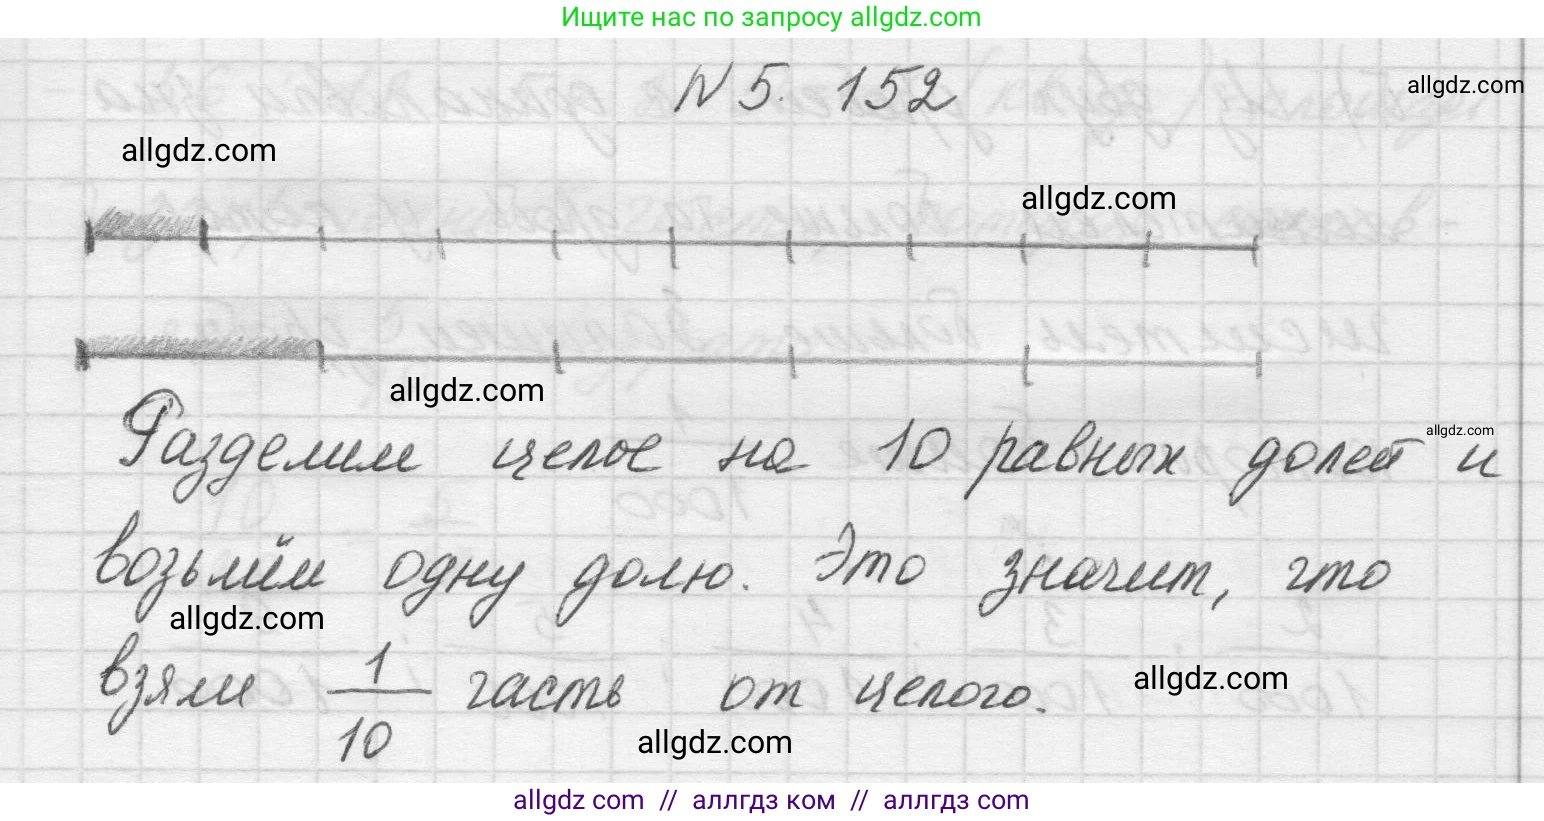 Ищите нас по запросу allgdz.com
N 5. 152
allgdz.com
allgdz.com
allgdz.com
allgdz.com
Разделим целое на 10 равных долей и
allgdz.com
возьмём одну долю. Это значит, что
allgdz.com
взяли 1/10 часть от целого.
allgdz.com
allgdz.com
allgdz com // аллгдз ком // аллгдз com